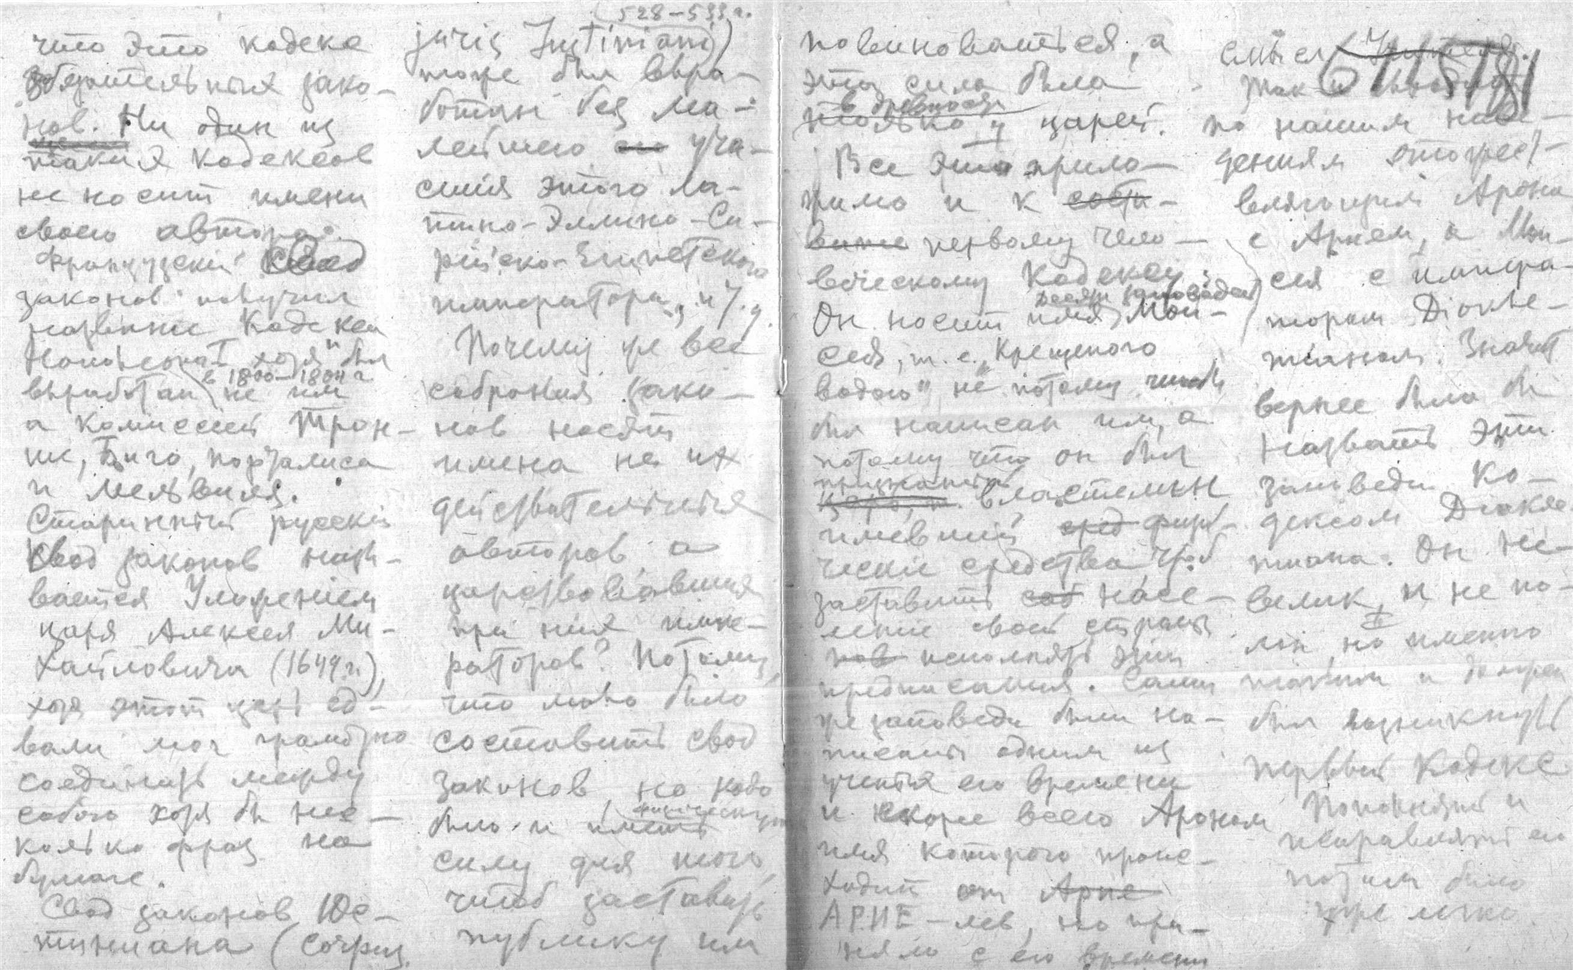 что это кодекс
обязательных зако-
нов. Ни один из
таких кодексов
не носит имени
своего автора.
Французский Свод
законов получил
название Кодекса
Наполеона I, хотя был
выработан в 1800–1804 г. не им
а комиссией Трон-
ше, Биго, Порталиса
и Мальвиля.
Старинный русский
Свод законов назы-
вается Уложением
царя Алексея Ми-
хайловича (1649 г.),
хотя этот царь ед-
вали мог грамотно
соединить между
собою хотя бы нес-
колько фраз на
бумаге.
Свод законов Юс-
тиниана (Corpus
(528–533 г.
juris Justiniani)
тоже был выра-
ботан без ма-
лейшего уча-
стия этого ла-
тино-Эллино-Си-
рийско-Египетского
императора, и т. д.
Почему же все
собрания зако-
нов носят
имена не их
действительных
авторов, а
царствовавших
при них импе-
раторов? Потому,
что мало было
составить свод
законов, надо
было и иметь физическую
силу для того,
чтоб заставить
публику им
повиноваться, а
эта сила была
в древности
только у царей.
Все это прило-
жимо и к
первому чело-
веческому Кодексу:
десяти заповедей
Он носит имя Мои-
сея, т. е. „Крещеного
водою", не потому чтоб
был написан им, а
потому что он был
властелин
имевший физи-
ческие средства чтоб
заставить насе-
ление своей страны
исполнять эти
предписания. Сами
же заповеди были на-
писаны одним из
ученых его времени
и скорее всего Ароном
имя которого проис-
ходит от
АРИЕ – лев, но при-
няло с его времени
смысл Учителя.
Так и выходит
по нашим наве-
дениям отожест-
вляющим Арона
с Арием, а Мои-
сея с импера-
тором Диокле-
тианом. Значит
вернее было бы
назвать эти
заповеди Ко-
дексом Диокле-
тиана. Он не-
велик, и не по-
лон, но именно
таким и должен
был возникнуть
первый Кодекс.
Пополнять и
исправлять его
потом было
уже легко.